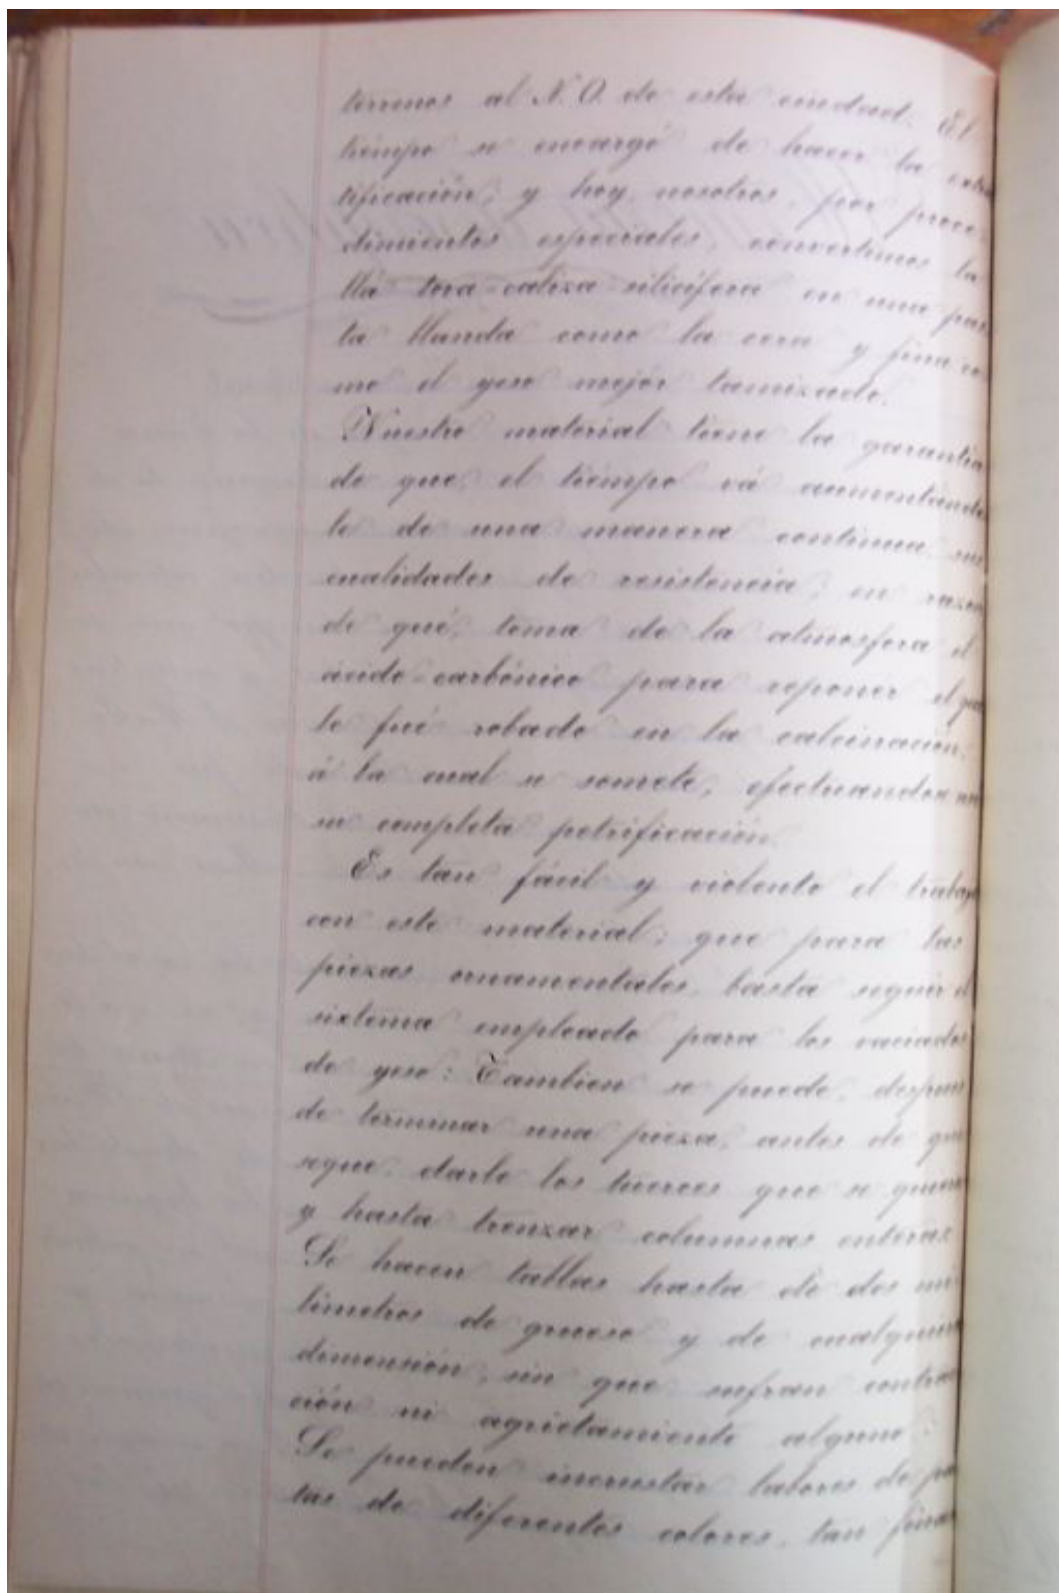 terrenos al N. O. de esta ciudad. El
tiempo se encargó de hacer la
tificación; y hoy, nosotros, por proce-
dimientos especiales, convertimos la
tosca-caliza-silicífera en una pas
ta blanda como la cera y fina co
mo el yeso mejor tamizado.
Nuestro material tiene la garantía
de que, el tiempo vá aumentando
le de una manera continua, sus
cualidades de resistencia; en razon
de qué, toma de la atmosfera el
ácido-carbónico para reponer el que
le fué robado en la calcinación:
á la cual se somete; efectuandose
su completa petrificación.
Es tan fácil y violento el trabajo
con este material; que para las
piezas ornamentales, basta seguir el
sistema empleado para los vaciados
de yeso: Tambien se puede, despues
de terminar una pieza, antes de que
seque, darle los tuerces que se quiera
y hasta trenzar columnas enteras.
Se hacen tablas hasta de dos mi
límetros de grueso y de cualquiera
dimensión; sin que sufran contrac
ción ni agrietamiento alguno:
Se pueden incrustar labores de pas
tas de diferentes colores, tan finas